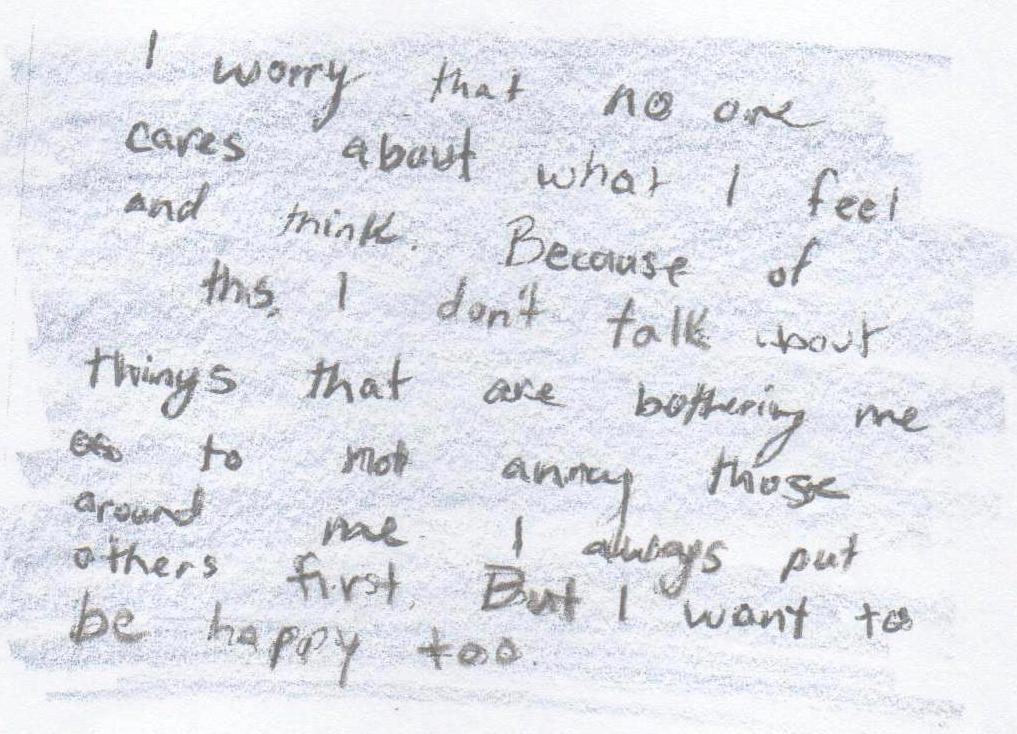 I worry that no one
cares about what I feel
and think. Because of
this, I don't talk about
things that are bothering me
as to not annoy those
around me. I always put
others first. But I want to
be happy too.